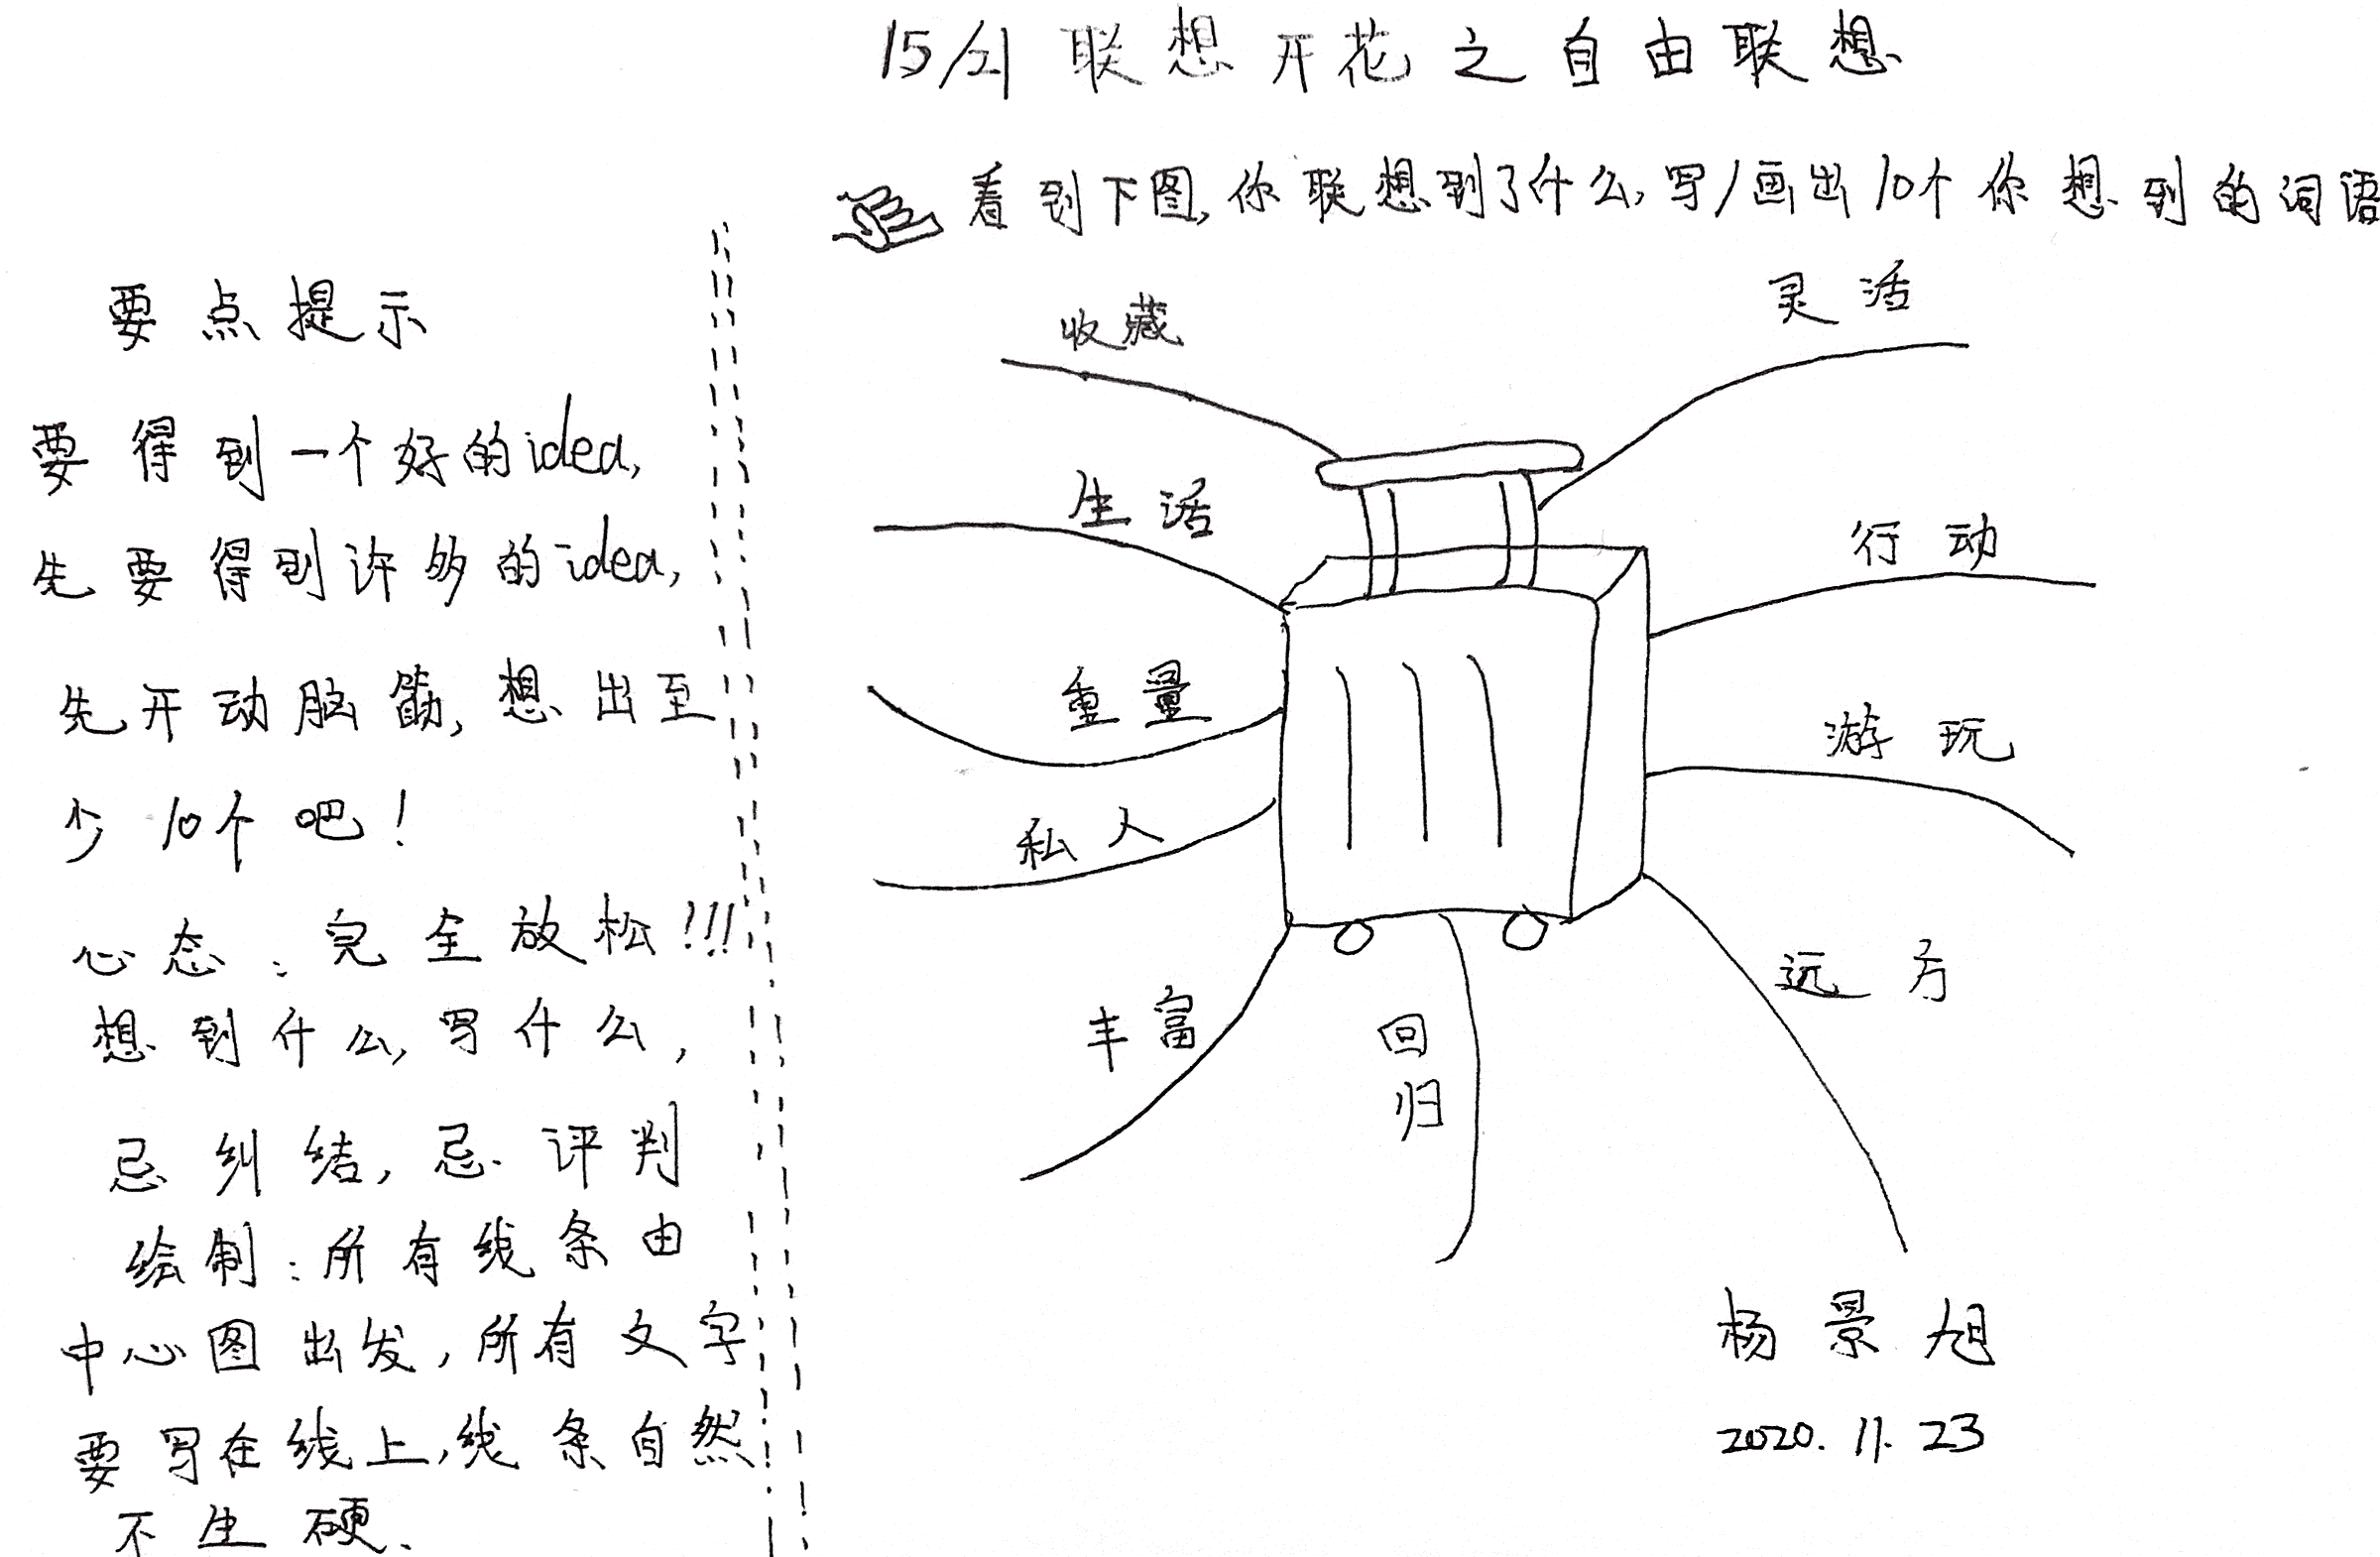 15/21 联想开花之自由联想
看到下图,你联想到了什么,写/画出10个你想到的词语
要点提示
要得到一个好的idea,
先要得到许多的idea,
先开动脑筋,想出至
少10个吧!
心态:完全放松!!!
想到什么,写什么,
忌纠结,忌评判
绘制:所有线条由
中心图出发,所有文字
要写在线上,线条自然
不生硬.
收藏
灵活
生活
行动
重量
游玩
私人
远方
丰富
回归
杨景旭
2020.11.23